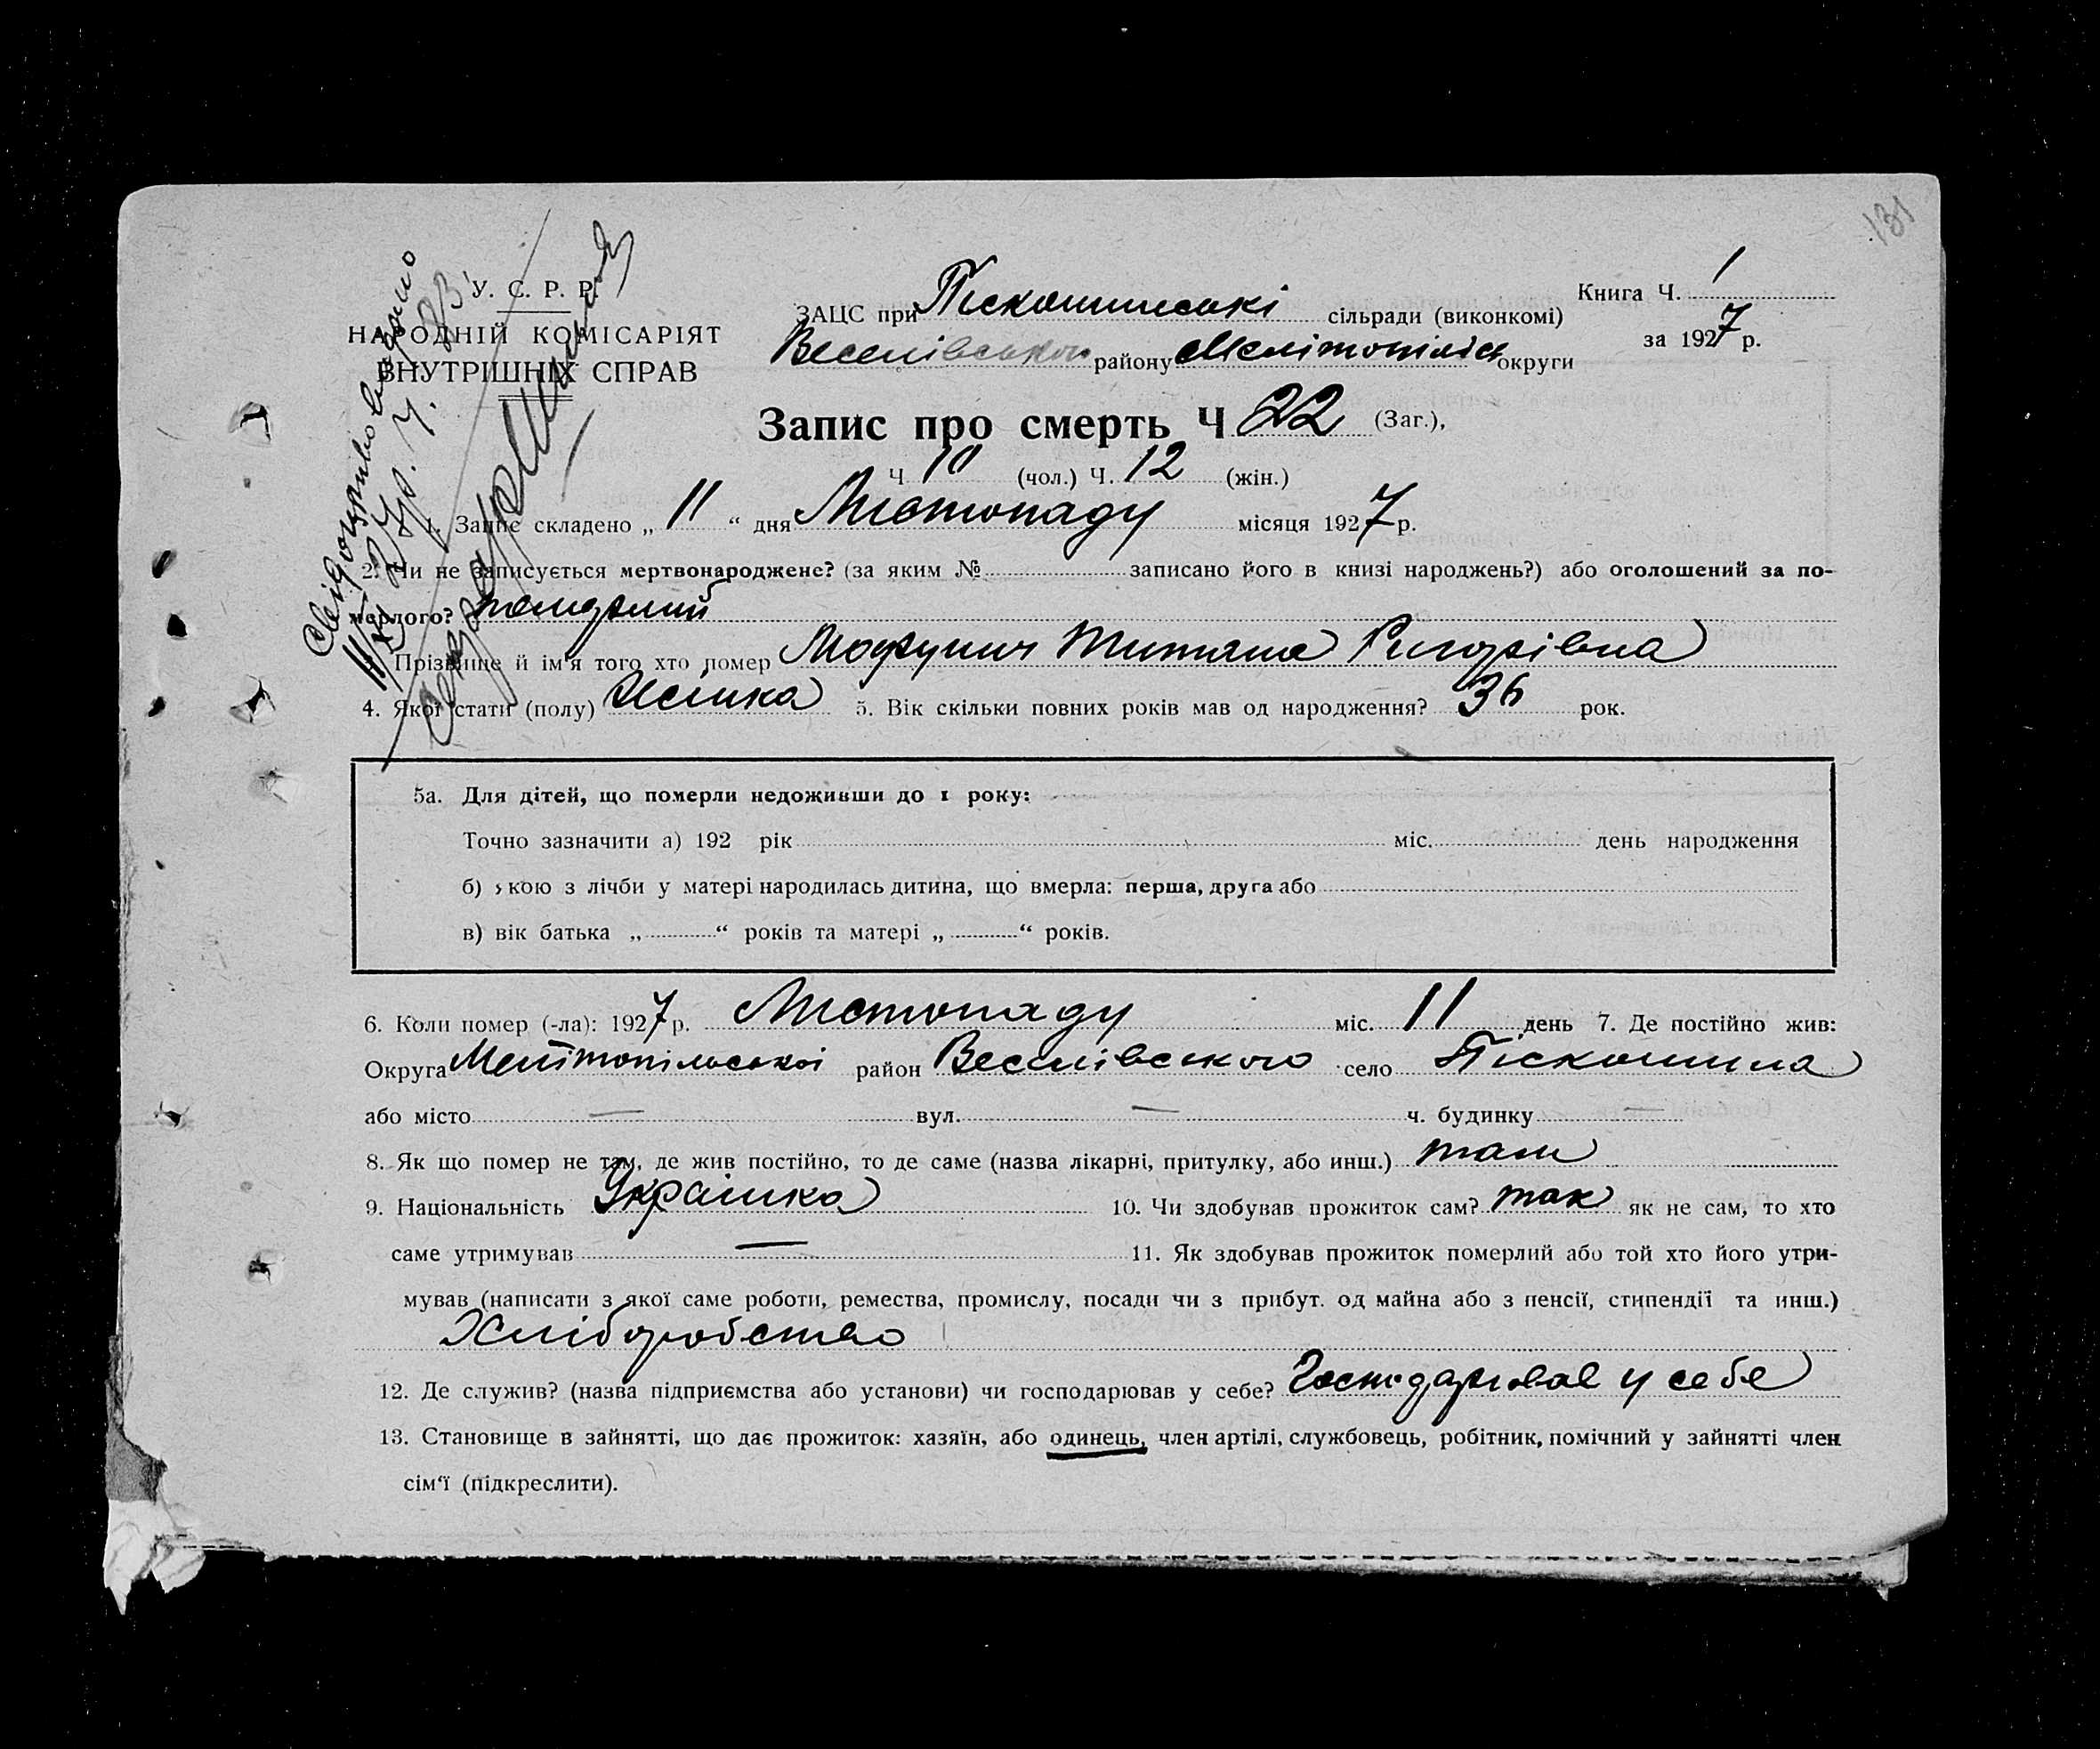 131
У. С. Р. Р.
НАРОДНІЙ КОМІСАРІЯТ
ВНУТРІШНІХ СПРАВ
Свідоцтво видано
ЗАЦС при Піскошинські сільради (виконкомі)
Веселівського району Мелітопільск округи
Книга Ч. 1
за 1927 р.
Запис про смерть Ч 22 (Заг.),
Ч 10 (чол.) Ч. 12 (жін.)
1. Запис складено „ 11 “ дня Листопаду місяця 1927 р.
2. Чи не записується мертвонароджене? (за яким № записано його в книзі народжень?) або оголошений за по-
мерлого?
Прізвище й ім'я того хто помер Титяна Григорівна
4. Якої стати (полу) Жінка 5. Вік скільки повних років мав од народження? 36 рок.
5а. Для дітей, що померли недоживши до 1 року:
Точно зазначити а) 192 рік міс. день народження
б) якою з лічби у матері народилась дитина, що вмерла: перша, друга або
в) вік батька „ “ років та матері „ “ років.
6. Коли помер (-ла): 1927 р. Листопаду міс. 11 день 7. Де постійно жив:
Округа Мелітопільської район Веселівського село Піскошина
або місто — вул. — ч. будинку —
8. Як що помер не там, де жив постійно, то де саме (назва лікарні, притулку, або инш.) там
9. Національність Українка 10. Чи здобував прожиток сам? так як не сам, то хто
саме утримував — 11. Як здобував прожиток померлий або той хто його утри-
мував (написати з якої саме роботи, ремества, промислу, посади чи з прибут. од майна або з пенсії, стипендії та инш.)
Хліборобство
12. Де служив? (назва підприємства або установи) чи господарював у себе? Господарював у себе
13. Становище в зайнятті, що дає прожиток: хазяїн, або одинець, член артілі, службовець, робітник, помічний у зайнятті член
сім'ї (підкреслити).